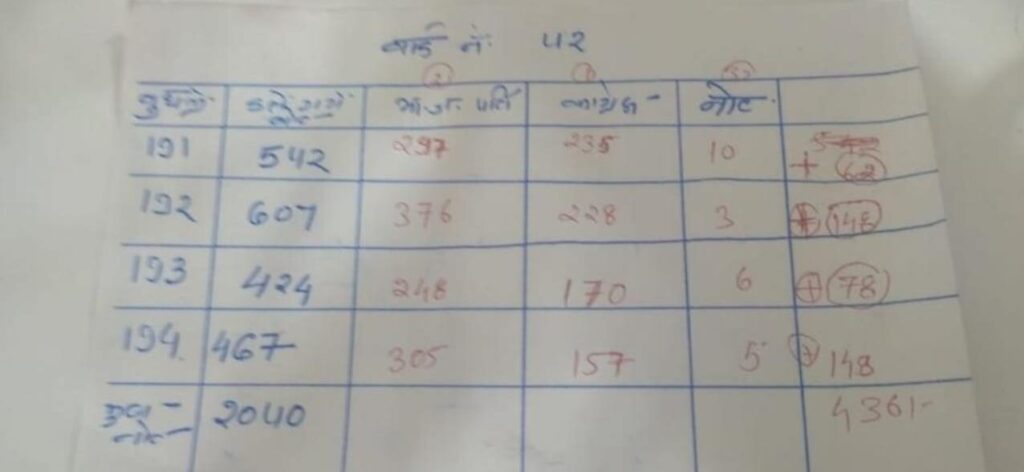 वार्ड नं. 42
2 1 3
नोट
191 542 297 235 10 + 62
192 607 376 228 3 + 148
193 424 248 170 6 + 78
194 467 305 157 5 + 148
2040 4361-